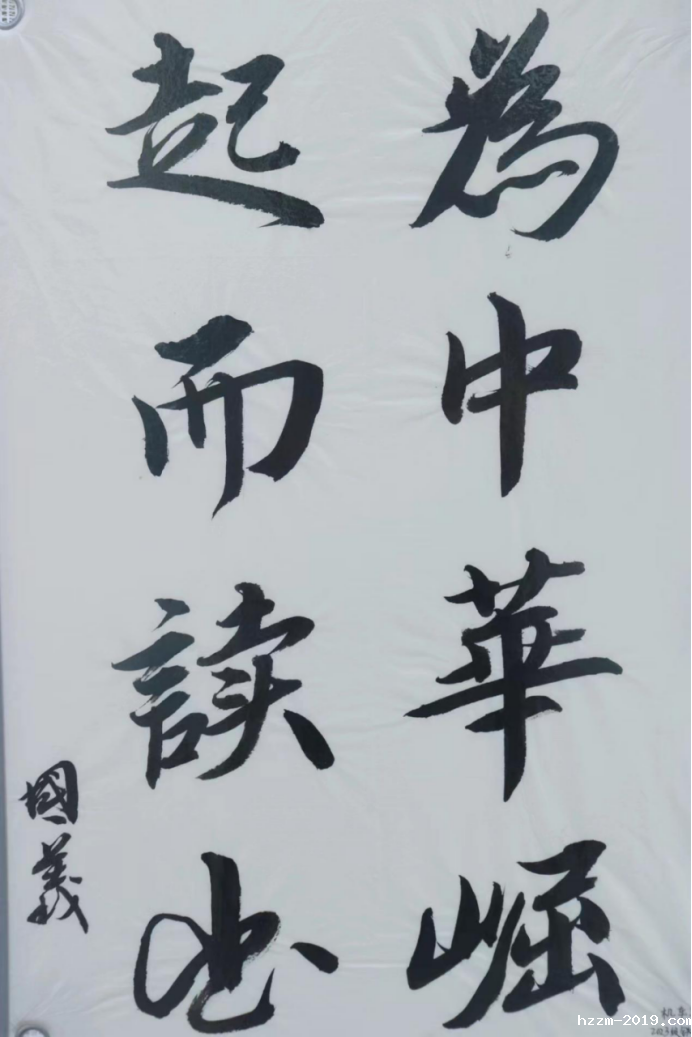 為中華崛
起而読书
國義
hzzm-2019.com